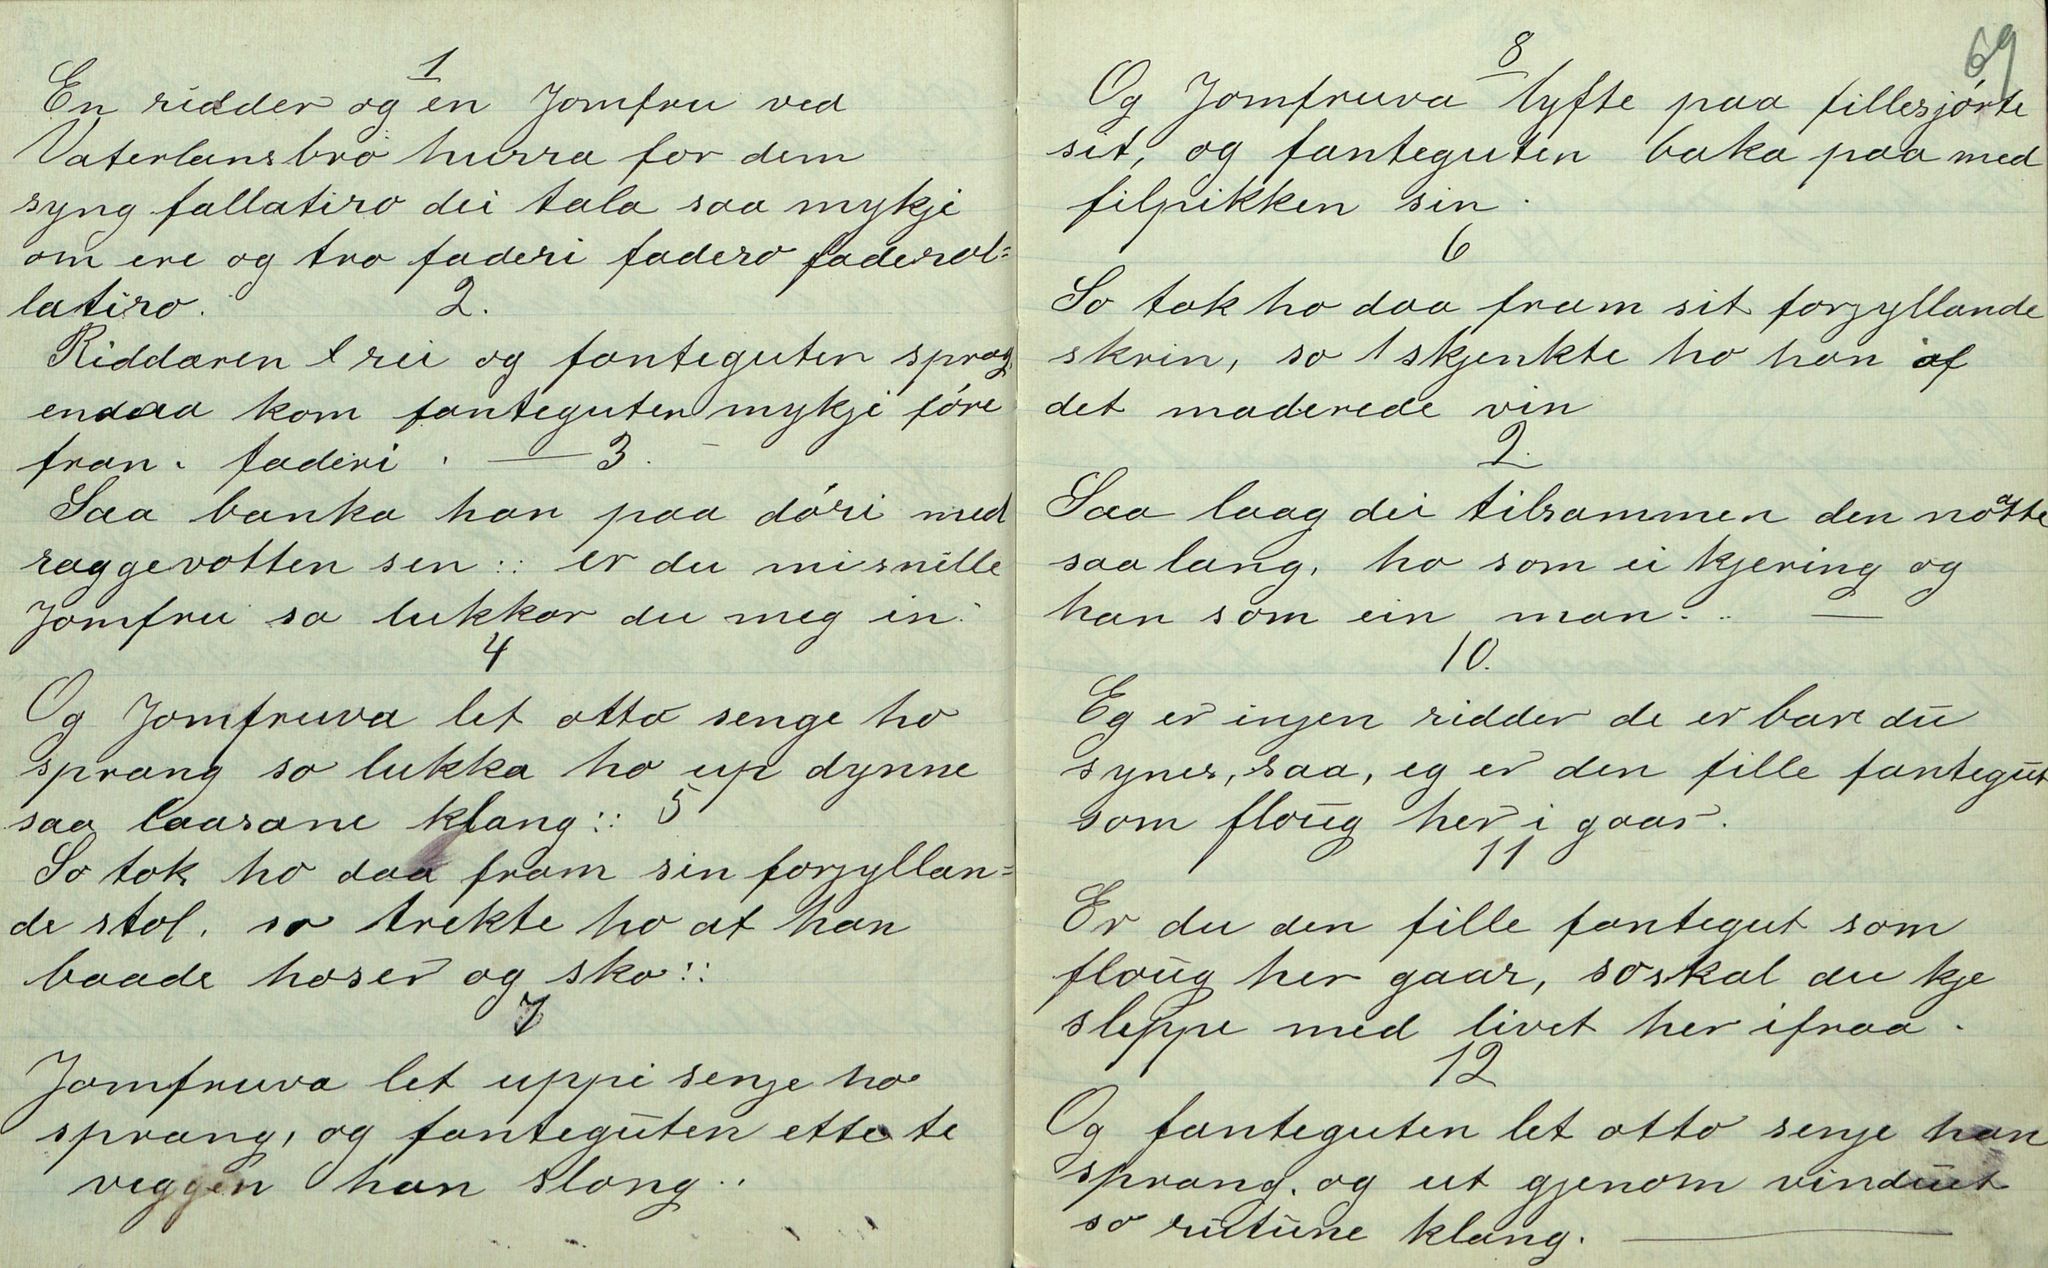 1
En ridder og en Jomfru ved
Vaterlansbro hurra for dem
syng fallatiro dei tala saa mykje
om ere og tro faderi fadero faderol=
latiro.
2.
Riddaren rei og fanteguten sprag
endaa kom fanteguten mykji fóre
fran. faderi. — 3.
Saa banka han paa dóri med
raggevotten sen :: er du mi snille
Jomfru so lukkar du meg in.
4
Og Jomfruva let otto senge ho
sprang so lukka ho up dynne
saa laasane klang :: 5
So tok ho daa fram sin forjyllan=
de stol. so trekte ho at han
baade hoser og sko ::
7
Jomfruva let uppi senje ho
sprang, og fanteguten ette te
veggen han slong..
69
8
Og Jomfruva lyfte paa fillesjórte
sit, og fanteguten baka paa med
filpikken sin.
6
So tok ho daa fram sit forjyllande
skrin, so skjenkte ho han af
det maderede vin
2.
Saa laag dei tilsammen den notte
saa lang, ho som ei kjering og
han som ein man. .. —
10.
Eg er injen ridder de er bare du
synes, saa, eg er den fille fantegut
som floug her i gaar.
11
Er du den fille fantegut som
floug her gaar, so skal du kje
sleppe med livet her ifraa.
12
Og fanteguten let otto senje han
sprang. og ut gjenom vinduet
so rutune klang. —